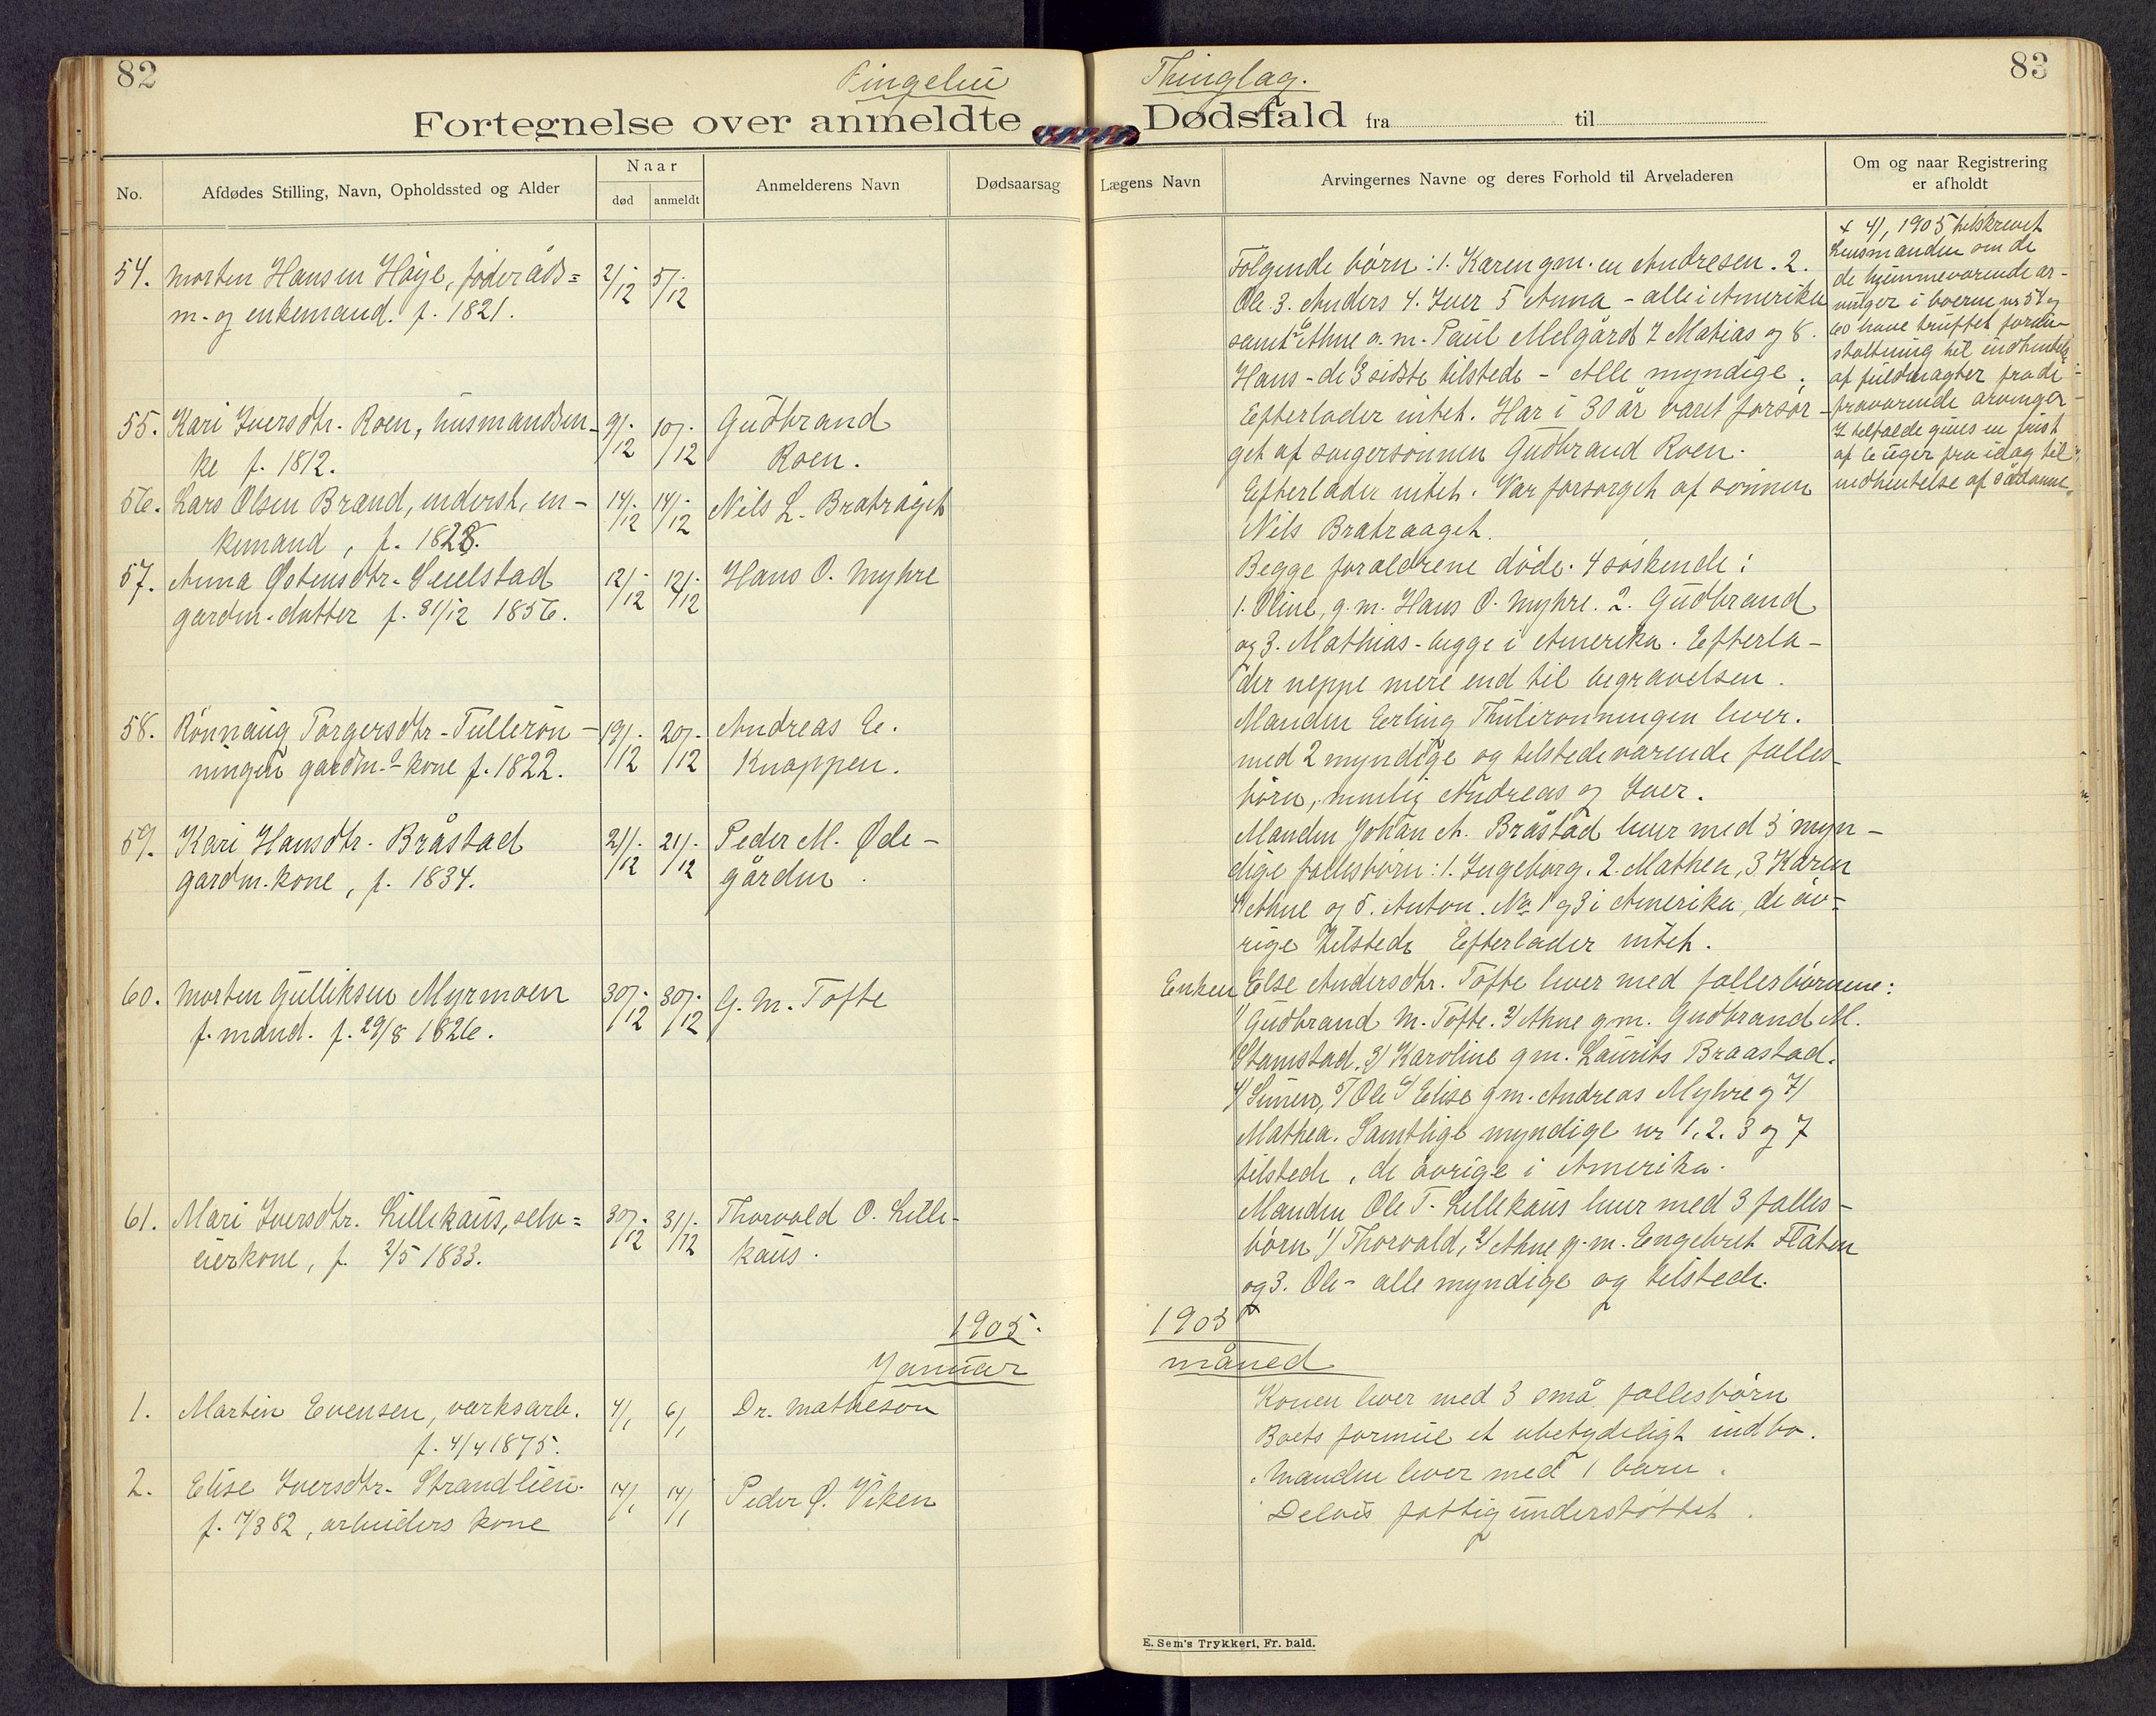 82
Ringebu
Thinglag.
83
Fortegnelse over anmeldte Dødsfald fra til
No.
Afdødes Stilling, Navn, Opholdssted og Alder
Naar
død
anmeldt
Anmelderens Navn
Dødsaarsag
Lægens Navn
Arvingernes Navne og deres Forhold til Arveladeren
Om og naar Registrering
er afholdt
54. Morten Hansen Høye, føderåds=
m. og enkemand. f. 1821.
2/12 5/12
Følgende børn: 1. Karen gm. en Andresen. 2.
Ole 3. Anders 4. Iver 5 Anna - alle i Amerika
samt 6 Ahne g. m. Paul Melgård 7 Matias og 8.
Hans - de 3 sidste tilstede - Alle myndige.
+ 4/1 1905 tilskrevet
Lensmanden om de
de hjemmeværende ar-
vinger i boerne nr 54 og
60 have truffet foran-
staltning til indhentelse
af fuldmagter fra de
fraværende arvinger
I tilfælde gives en frist
af 6 uger fra idag til
indhentelse af sådanne.
55. Kari Iversdtr. Roen, husmandsen-
ke f. 1812.
9/12 10/12
Gudbrand
Roen.
Efterlader intet. Har i 30 år været forsør-
get af svigersønnen Gudbrand Roen.
56. Lars Olsen Brænd, inderst, en-
kemand, f. 1828.
14/12 14/12
Nils L. Bratråget
Efterlader intet. Var forsørget af sønnen
Nils Bratraaget.
57. Anna Østensdtr. Sulstad
gårdm. datter f. 31/12 1856.
12/12 12/12
Hans O. Myhre
Begge forældrene døde. 4 søskende:
1. Oline, g. m. Hans O. Myhre. 2. Gudbrand
og 3. Mathias - begge i Amerika. Efterla-
der neppe mere end til begravelsen.
58. Rönnaug Torgersdtr. Tullerøn-
ningen gaardm. kone f. 1822.
19/12 20/12
Andreas E.
Knappen.
Manden Erling Thulirønningen lever.
med 2 myndige og tilstedeværende fælles-
børn, nemlig Andreas og Iver.
59. Kari Hansdtr. Bråstad
gårdm. kone, f. 1834.
21/12 21/12
Peder M. Øde-
gården.
Manden Johan A. Bråstad lever med 5 myn-
dige fællesbørn: 1. Ingeborg. 2. Mathea, 3 Karen
4 Ahne og 5. Anton. No 1 og 3 i Amerika, de øv=
rige tilstede Efterlader intet.
60. Morten Gulliksen Myrmoen
f. mand. f. 29/8 1826.
30/12 30/12
G. M. Tofte
Enken Else Andersdtr. Tofte lever med fællesbørnene:
1/ Gudbrand M. Tofte. 2/ Ahne gm. Gudbrand M.
Stamstad. 3/ Karoline gm. Laurits Braastad.
4/ Simen, 5/ Ole 6/ Elise gm. Andreas Myhre og 7/
Mathea. Samtlige myndige nr 1. 2. 3 og 7
tilstede, de øvrige i Amerika.
61. Mari Iversdtr. Lillekaus, selv=
eierkone, f. 2/5 1833.
30/12 31/12
Thorvald O. Lille-
kaus.
Manden Ole T. Lillekaus lever med 3 fælles-
børn 1/ Thorvald, 2/ Ahne g. m. Engebret Flaten
og 3. Ole - alle myndige og tilstede.
1905.
1905
Januar
måned
1. Martin Evensen, værksarb.
f. 4/4 1875.
4/1 6/1
Dr. Matheson
Konen lever med 3 små fællesbørn
Boets formue et ubetydeligt indbo.
2. Elise Iversdtr. Strandlien.
f. 17/3 82, arbeiders kone
14/1 14/1
Peder O. Viken
Manden lever med 1 barn.
Delvis fattigunderstøttet.
E. Sem's Trykkeri, Fr. hald.